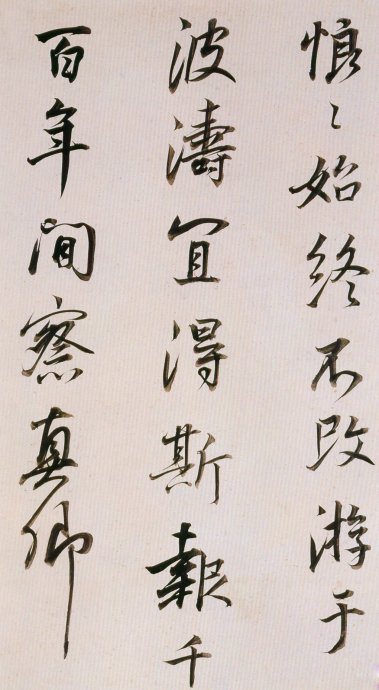 悢〻始終不改游于
波濤宜得斯報千
百年間察真卿